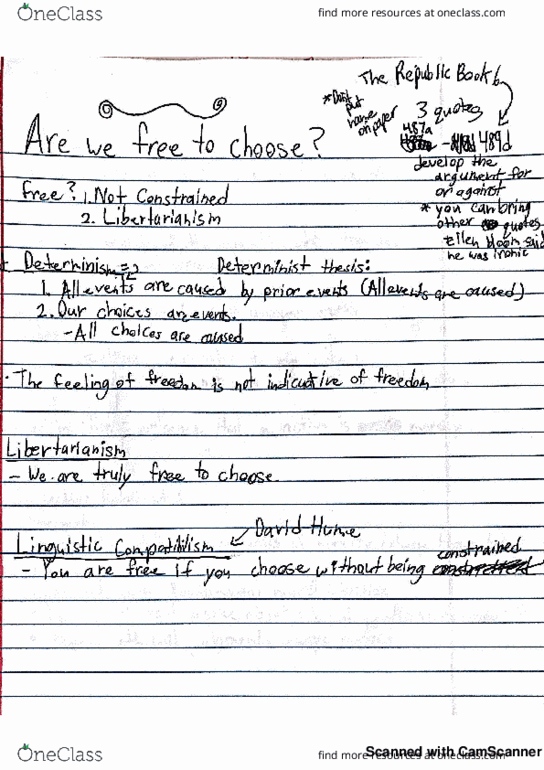 OneClass
find more resources at oneclass.com
The Republic Book 6
*Dont put name on paper
3 quotes
487a - 489d
develop the
argument for
or against
* you can bring
other quotes
bloom said
he was ironic
Are we free to choose?
free? 1. Not Constrained
2. Libertarianism
Determinism = 2 Determinist thesis:
1. All events are caused by prior events (All events are caused)
2. Our choices are events.
- All choices are caused
· The feeling of freedom is not indicitive of freedom
Libertarianism
- We are truly free to choose.
Linguistic Compatibilism ← David Hume
- You are free if you choose without being constrained
OneClass
find more resources at oneclass.com
Scanned with CamScanner